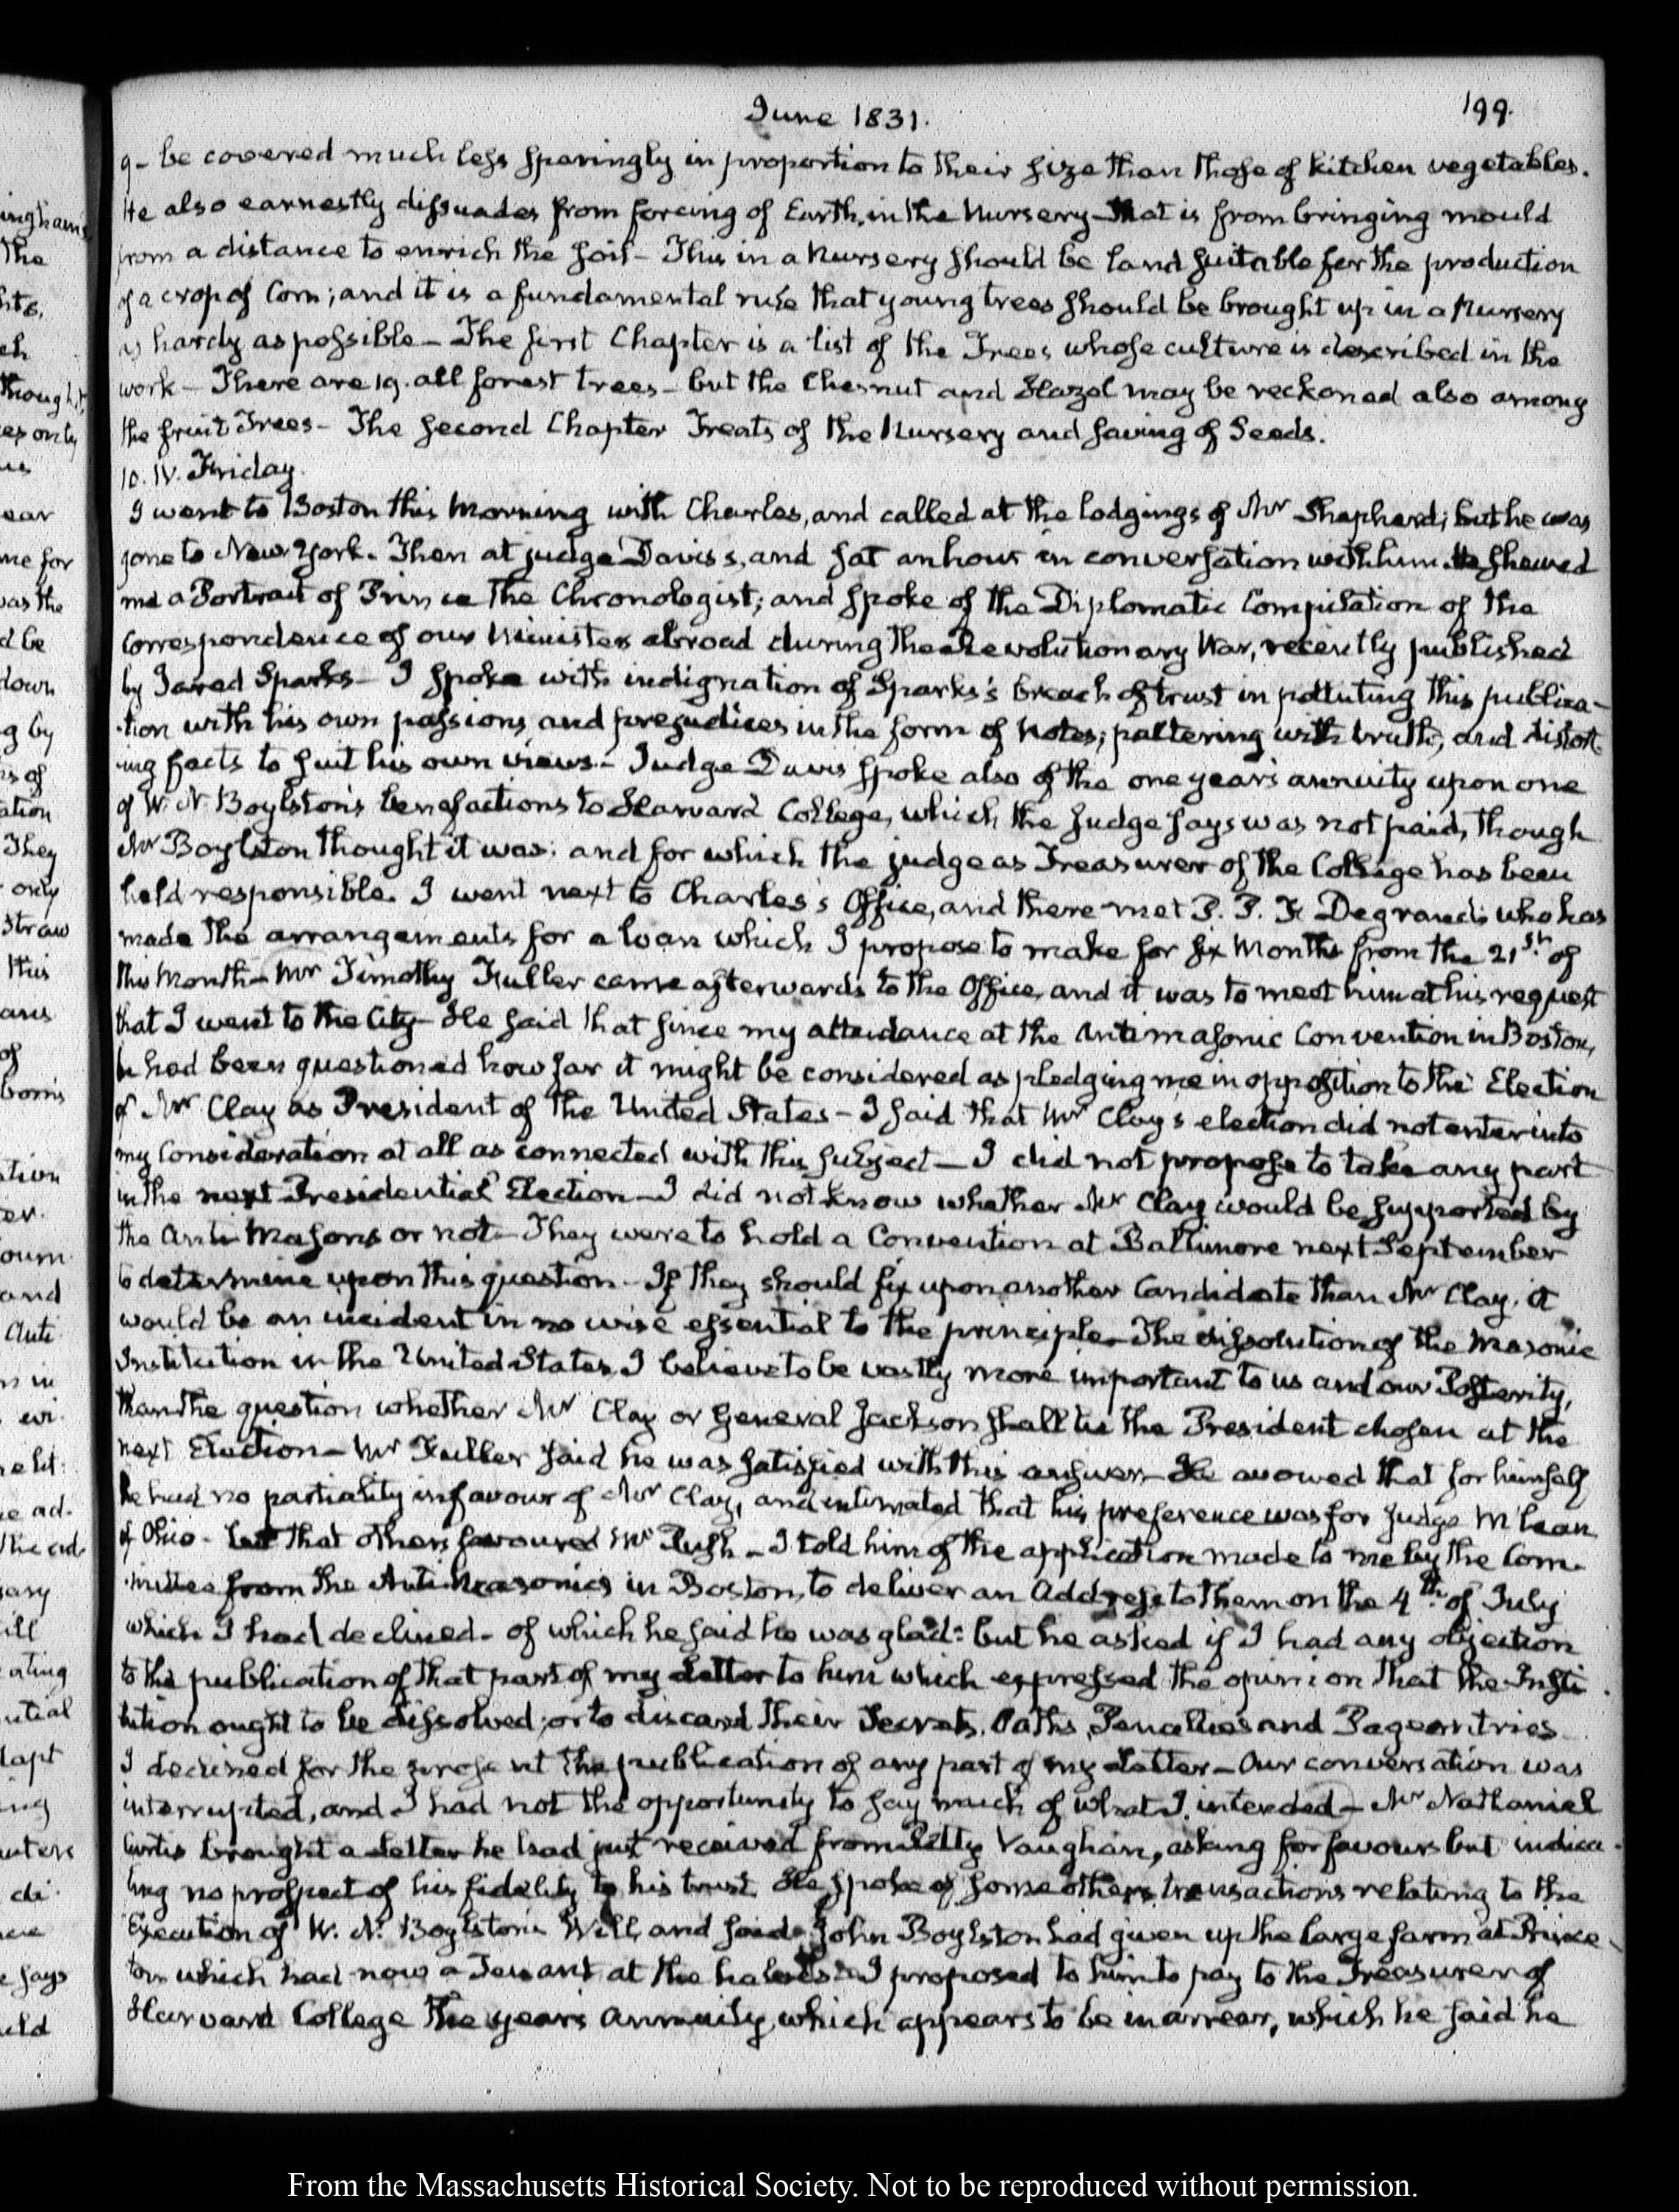 June 1831.
199.
9- be covered much less sparingly in proportion to their size than those of kitchen vegetables.
He also earnestly dissuades from forcing of Earth, in the Nursery- that is from bringing mould
from a distance to enrich the soil- This in a Nursery should be land suitable for the production
of a crop of Corn; and it is a fundamental rule that young trees should be brought up in a Nursery
as hardy as possible- The first Chapter is a list of the Trees whose culture is described in the
work- There are 19. all forest trees- but the Chesnut and Hazel may be reckoned also among
the fruit Trees- The second Chapter Treats of the Nursery and saving of Seeds.
10. IV. Friday.
I went to Boston this Morning with Charles, and called at the lodgings of Mr Shepherd; but he was
gone to New-York. Then at judge Davis's, and sat an hour in conversation with him. He shewed
me a Portrait of Prince the Chronologist; and spoke of the Diplomatic Compilation of the
Correspondence of our Ministers abroad during the Revolutionary War, recently published
by Jared Sparks- I spoke with indignation of Sparks's breach of trust in polluting this publica-
-tion with his own passions and prejudices in the form of Notes; paltering with truth, and distort-
-ing facts to suit his own views- Judge Davis spoke also of the one year's annuity upon one
of W. N. Boylston's benefactions to Harvard College, which the Judge says was not paid, though
Mr Boylston thought it was; and for which the judge as Treasurer of the College has been
held responsible. I went next to Charles's Office, and there met P. P. F. Degrand; who has
made the arrangements for a loan which I propose to make for six Months from the 21st of
this Month- Mr Timothy Fuller came afterwards to the Office, and it was to meet him at his request
that I went to the City- He said that since my attendance at the Antimasonic Convention in Boston,
he had been questioned how far it might be considered as pledging me in opposition to the Election
of Mr Clay as President of the United States- I said that Mr Clay's election did not enter into
my Consideration at all as connected with this subject- I did not propose to take any part
in the next Presidential Election- I did not know whether Mr Clay would be supported by
the Anti Masons or not- They were to hold a Convention at Baltimore next September
to determine upon this question- If they should fix upon another Candidate than Mr Clay, it
would be an incident in no wise essential to the principle- The dissolution of the Masonic
Institution in the United States, I believe to be vastly more important to us and our Posterity,
than the question whether Mr Clay or General Jackson shall be the President chosen at the
next Election- Mr Fuller said he was satisfied with this answer- He avowed that for himself
he had no partiality in favour of Mr Clay, and intimated that his preference was for Judge McLean
of Ohio- but that others favoured Mr Rush- I told him of the application made to me by the Com-
-mittee from the Anti-Masonics in Boston, to deliver an Address to them on the 4th. of July
which I had declined- of which he said he was glad: but he asked if I had any objection
to the publication of that part of my Letter to him which expressed the opinion that the Insti-
tution ought to be dissolved; or to discard their Secrets, Oaths, Penalties and Pageantries
I declined for the present the publication of any part of my Letter- Our conversation was
interrupted, and I had not the opportunity to say much of what I intended- Mr Nathaniel
Curtis brought a Letter he had just received from Petty Vaughan, asking for favours but indica-
ting no prospect of his fidelity to his trust. He spoke of some others transactions relating to the
Execution of W. N. Boylston's Will, and said John Boylston had given up the large farm at Prince-
ton which had now a Tenant at the halves. I proposed to him to pay to the Treasurer of
Harvard College the year's Annuity, which appears to be in arrear, which he said he
From the Massachusetts Historical Society. Not to be reproduced without permission.